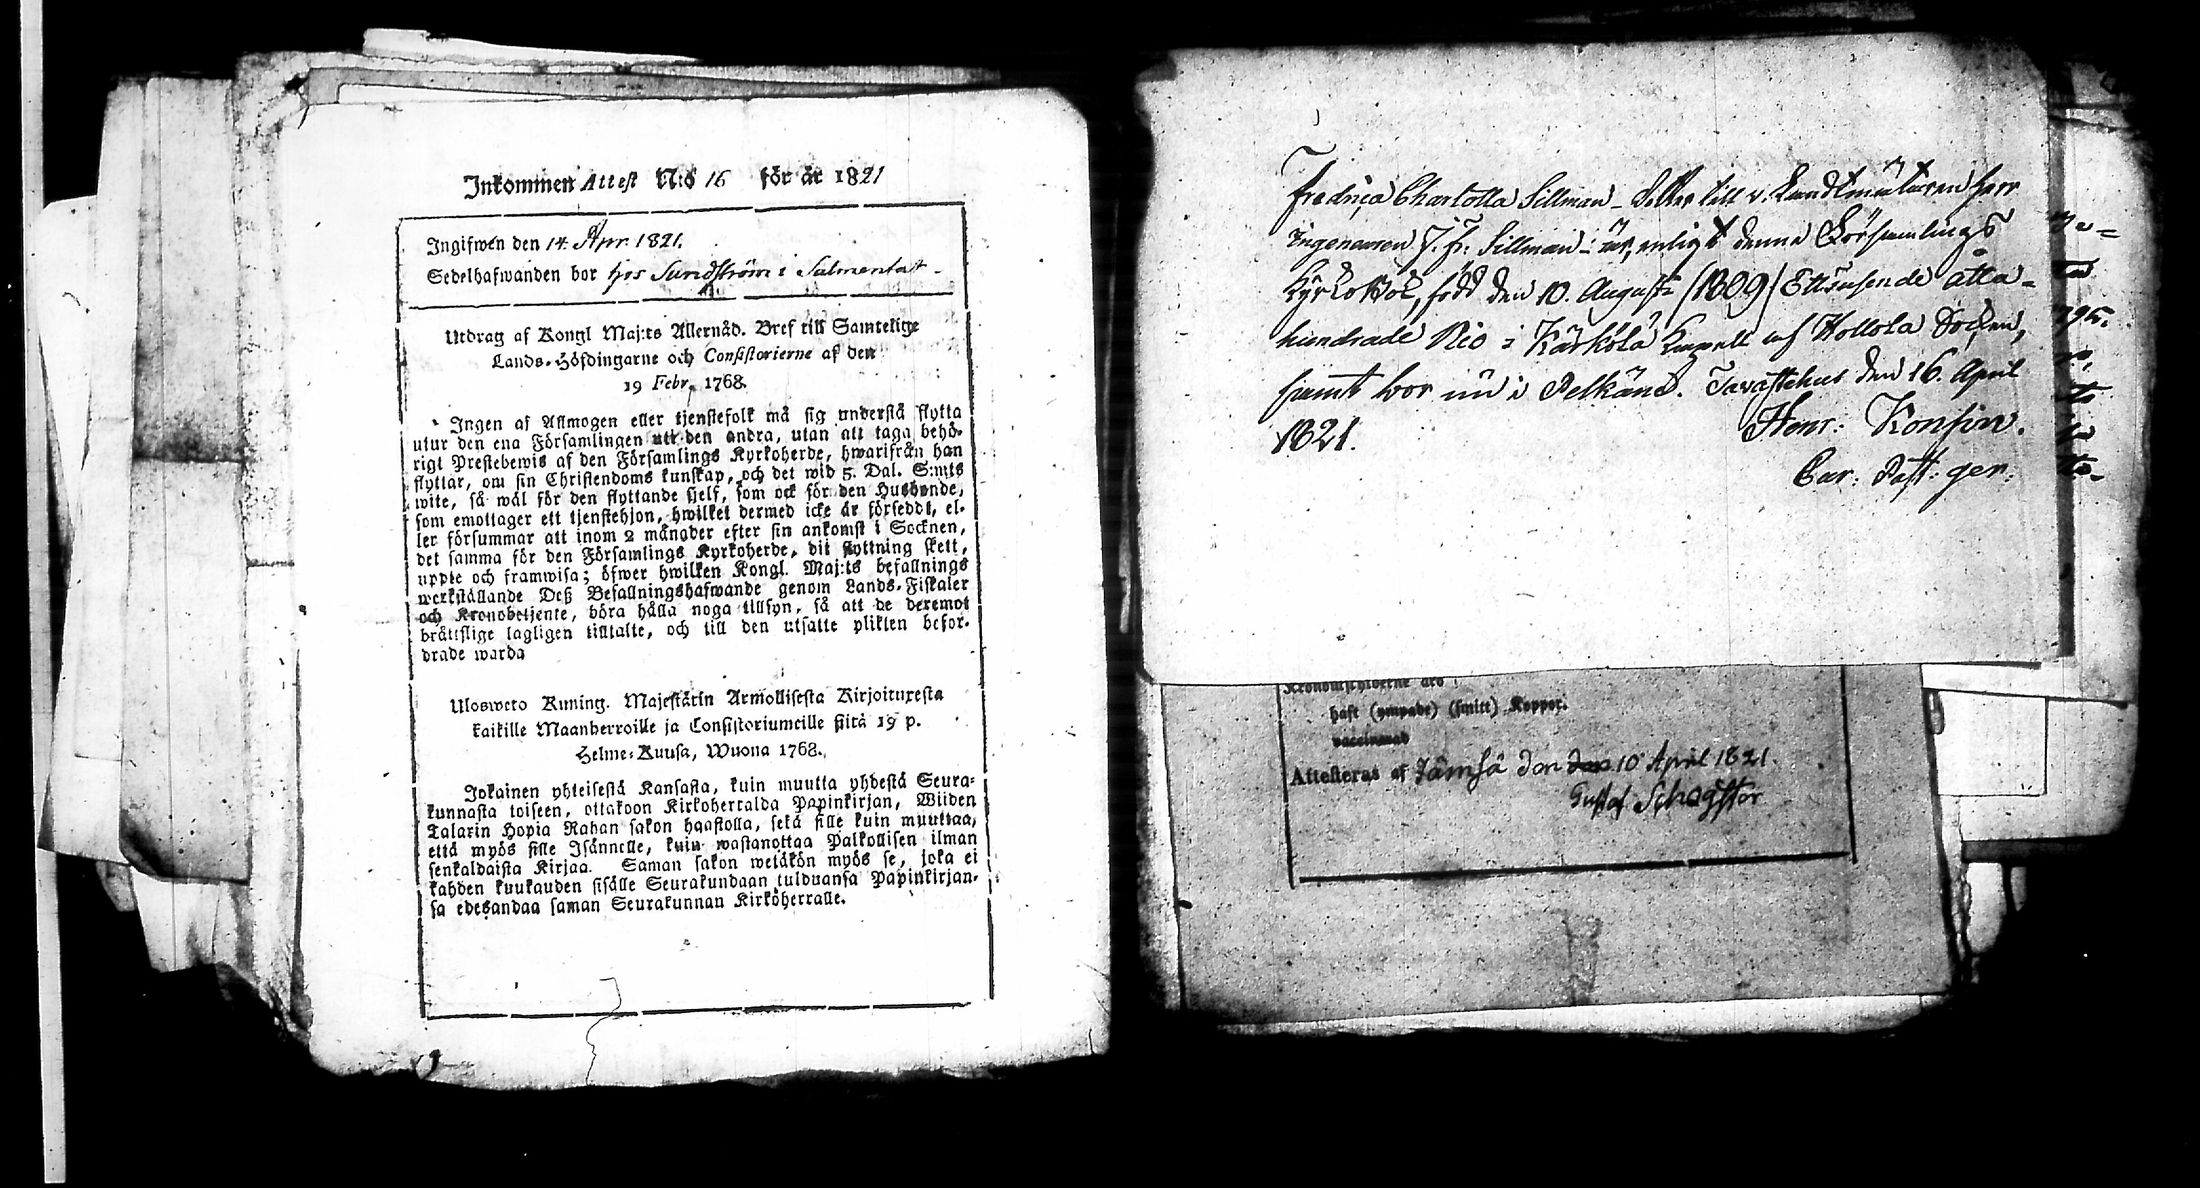 Inkommen Attest N:ö 16 för år 1821
Ingifwen den 14. Apr. 1821.
Sedelhafwanden bor hos Sundström i Salmentak
Utdrag af Kongl Maj:ts Allernåd. Bref till Samtelige
Lands-Höfdingarne och Consistorierne af den
19 Febr. 1768.
Ingen af Allmogen eller tjenstefolk må sig understå flytta
utur den ena Församlingen uti den andra, utan att taga behö-
rigt Prestebewis af den Församlings Kyrkoherde, hwarifrån han
flyttar, om sin Christendoms kunskap, och det wid 5. Dal. S:mts
wite, så wäl för den flyttande sjelf, som ock för den Husbonde,
som emottager ett tjenstehjon, hwilket dermed icke är försedt, el-
ler försummar att inom 2 månader efter sin ankomst i Socknen,
det samma för den Församlings Kyrkoherde, dit flyttning skett,
uppte och framwisa; öfwer hwilken Kongl. Maj:ts befallnings
werkställande Deß Befallningshafwande genom Lands-Fiskaler
och Kronobetjente, böra hålla noga tillsyn, så att de deremot
bråttslige lagligen tilltalte, och till den utsatte plikten befor-
drade warda
Ulosweto Kuning. Majestärin Armollisesta Kirjoituxesta
kaikille Maanherroille ja Consistoriumeille siitä 19 p.
Helme-Kuusa, Wuona 1768.
Jokainen yhteisestä Kansasta, kuin muutta yhdestä Seura-
kunnasta toiseen, ottakoon Kirkoherralda Papinkirjan, Wiiden
Talarin Hopia Rahan sakon haastolla, sekä sille kuin muuttaa,
että myös sille Isännelle, kuin wastanottaa Palkollisen ilman
senkaldaista Kirjaa. Saman sakon wetäkön myös se, joka ei
kahden kuukauden sisälle Seurakundaan tulduansa Papinkirjan-
sa edesandaa saman Seurakunnan Kirköherralle.
Fredrica Charlotta Sillman - dotter till v. Landtmätaren Herr
Ingenieuren J. Fr. Sillman - är, enligt denne Församlings
Kyrkobok, född den 10. Augusti (1809) Ettusende åtta-
hundrade Nio i Kärkölä Kapell af Hollola Socken,
samt bor nu i Pelkäne. Tavastehus den 16. April
1821.
Henr: Konsin.
Cur: Past: ger:
haft (ympade) (smitt) Koppor.
vaccinerad
Attesteras af Jämsä den den 10 April 1821.
Gustaf Schogster